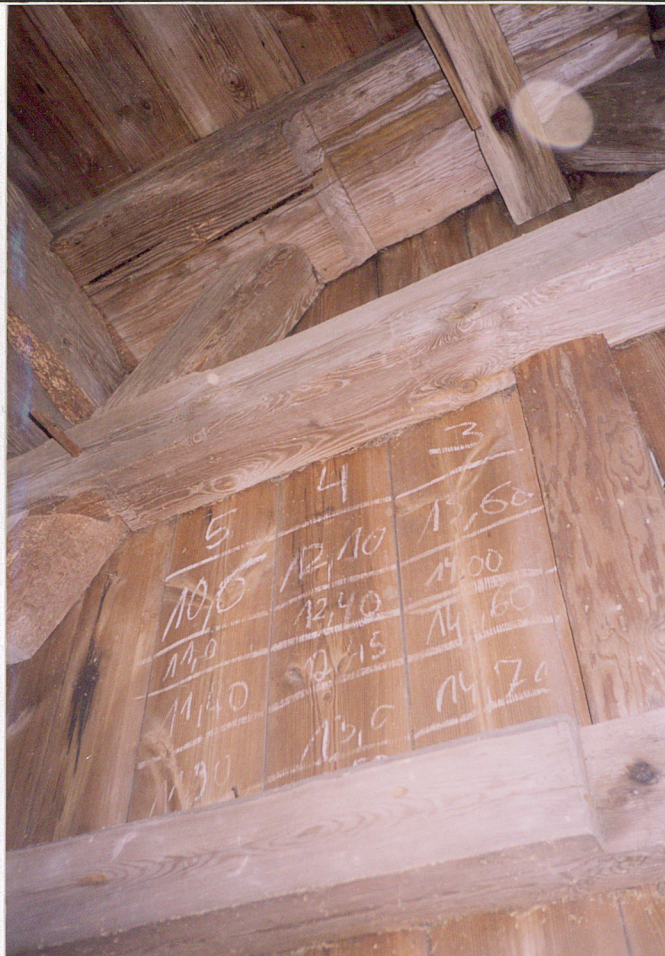 5 4 3
10,6 12,10 13,60
11,0 12,40 14,00
11,40 12,45 14,60
11,90 13,0 14,70